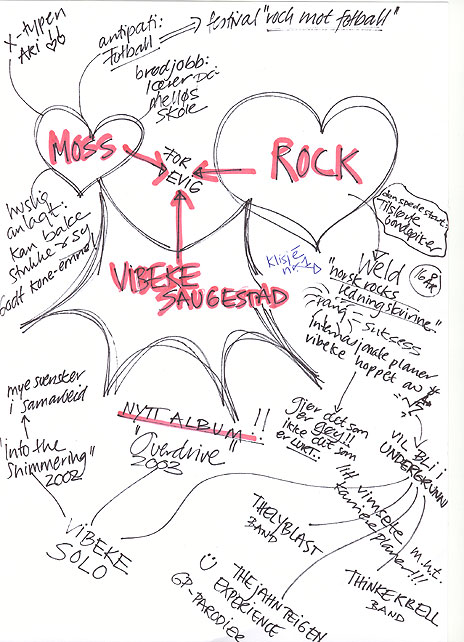 X-typen
Ari
antipati:
Fotball
festival "rock mot fotball"
brødjobb:
lærer på
melløs
skole
MOSS
FOR
EVIG
ROCK
huslig
anlagt:
kan bake
strikke & sy
godt kone-emne!
VIBEKE
SAUGESTAD
klisjé
Tilslørte
bondepiker
Weld
16 år
"norsk rocks
kvinne"
trang - suksess
Internasjonale planer
vibeke hoppet av
NYTT ALBUM!!
"Overdrive"
2003
gjør det som
er gøy!!
ikke det som
er LURT..
VIL BLI I
UNDERGRUNN
!!! vimsete m.h.t.
karriereplaner!!!
mye svensker
i samarbeid
"Into the
Shimmering"
2002
VIBEKE
SOLO
THELYBLAST
BAND
THE JAHN TEIGEN
EXPERIENCE
GP-PARODIER
THINKERBELL
BAND